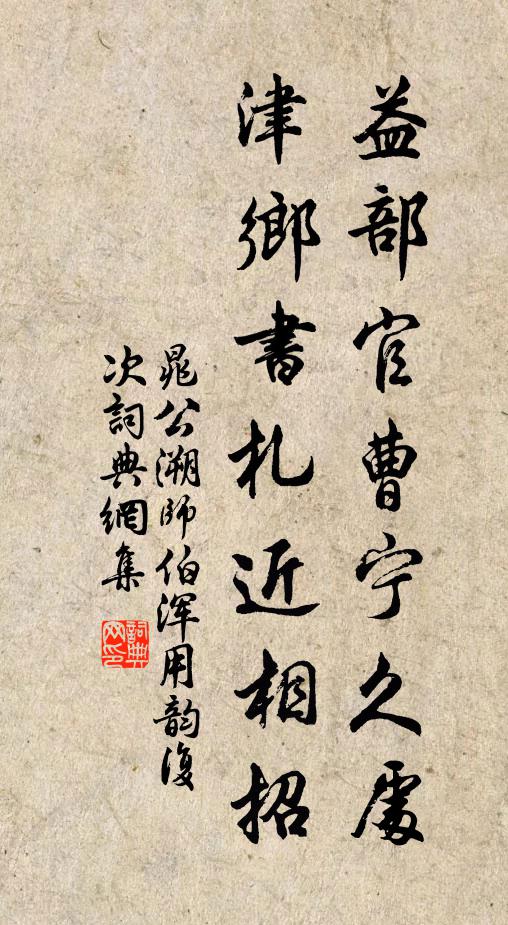 益部官曹宁久處
津鄉書札近相招
晁公溯師伯浑用韵復
次詞典網集
詞典网印